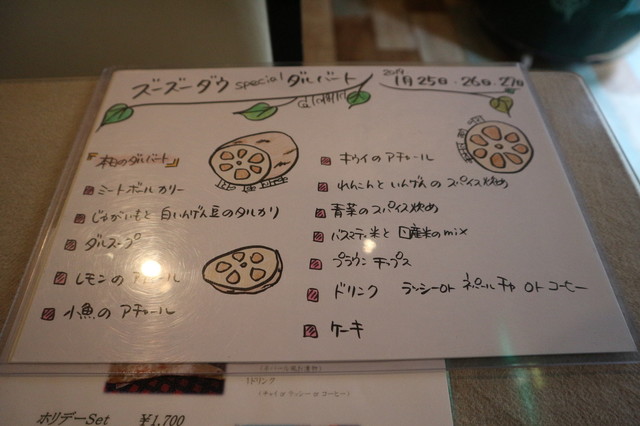 ズーズーダウ special ダルバート
1月25日・26日・27日
『本日のダルバート』
ミートボールカリー
じゃがいもと 白いんげん豆のタルカリ
ダルスープ
レモンの アチャール
小魚の アチャール
キウイの アチャール
れんこんと いんげんの スパイス炒め
青菜のスパイス炒め
バスマティ米と 国産米のmix
プラウン チップス
ドリンク ラッシーor ネパールチャ or コーヒー
ケーキ
ドリンク
(チャイ or ラッシー or コーヒー)
ホリデーSet ¥1,700